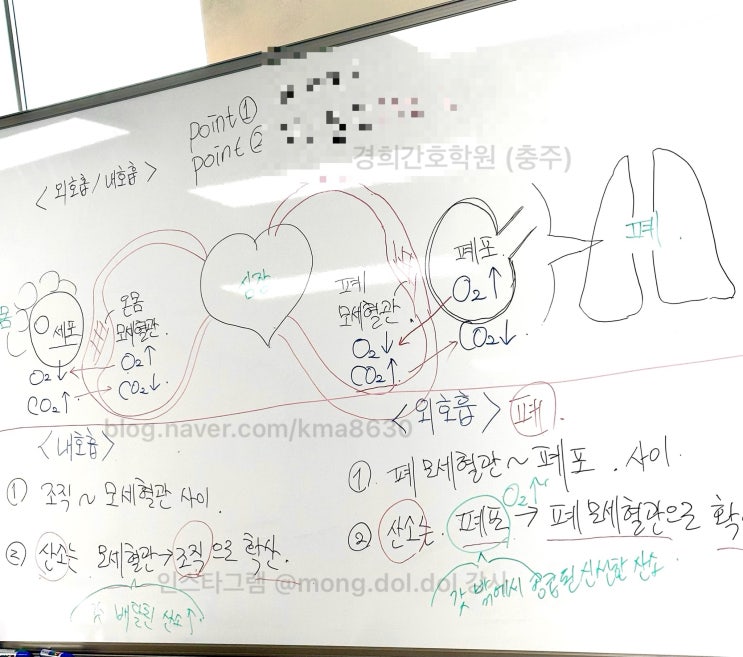 point①
point②
경희간호학원 (충주)
<외호흡/내호흡>
몸
세포
O₂↓
CO₂↑
온몸
모세혈관.
O₂↑
CO₂↓
심장
폐
모세혈관.
O₂↓
CO₂↑
폐포
O₂↑
CO₂↓
폐
blog.naver.com/kma8630
<내호흡>
① 조직~모세혈관 사이.
② 산소는 모세혈관→조직으로 확산.
배달된 산소↑
<외호흡> 폐.
① 폐모세혈관~폐포. 사이.
O₂↑
② 산소는 폐포→폐모세혈관으로
갓 밖에서 공급된 신선한 산소
인스타그램 @mong.dol.dol 강사